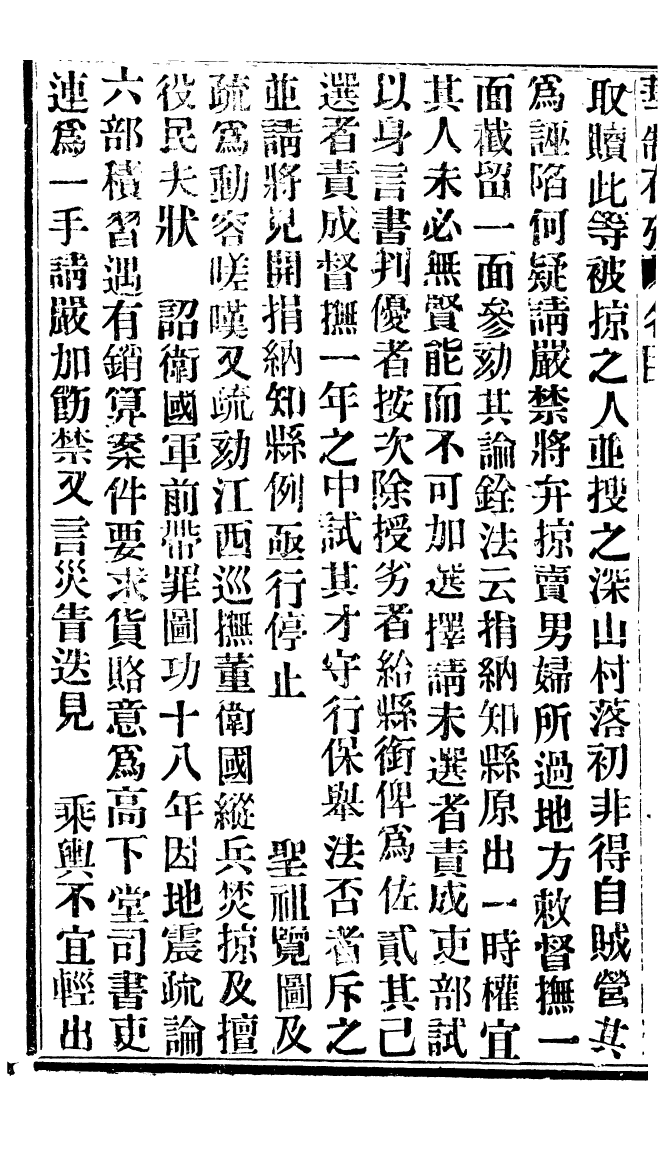 取贖此等被掠之人並搜之深山村落初非得自賊營其
爲誣陷何疑請嚴禁將弁掠賣男婦所過地方敕督撫一
面截留一面參劾其論銓法云捐納知縣原出一時權宜
其人未必無賢能而不可加選擇請未選者責成吏部試
以身言書判優者按次除授劣者給縣銜俾爲佐貳其已
選者責成督撫一年之中試其才守行保舉法否者斥之
並請將見開捐納知縣例亟行停止　聖祖覽圖及
疏爲動容嗟嘆又疏劾江西巡撫董衛國縱兵焚掠及擅
役民夫狀　詔衛國軍前帶罪圖功十八年因地震疏論
六部積習遇有銷算案件要求貨賂意爲高下堂司書吏
連爲一手請嚴加飭禁又言災眚迭見　乘輿不宜輕出